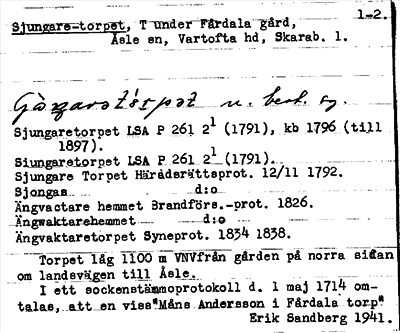 1-2.
Sjungare-torpet, T under Fårdala gård,
Åsle sn, Vartofta hd, Skarab. l.
u. best. sg.
Sjungaretorpet LSA P 261 2¹ (1791), kb 1796 (till
1897).
Siungaretorpet LSA P 261 2¹ (1791).
Sjungare Torpet Häradsrättsprot. 12/11 1792.
Sjongas d:o
Ängvactare hemmet Brandförs.-prot. 1826.
Ängwaktarehemmet d:o
Ängvaktaretorpet Syneprot. 1834 1838.
Torpet låg 1100 m VNVfrån gården på norra sidan
om landsvägen till Åsle.
I ett sockenstämmoprotokoll d. 1 maj 1714 om-
talas, att en viss"Måns Andersson i Fårdala torp"
Erik Sandberg 1941.